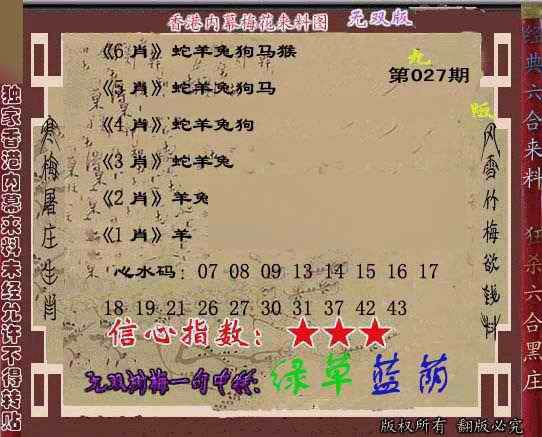 香港内幕梅花来料图 无双版
《6 肖》蛇羊兔狗马猴
第027期
《5 肖》蛇羊兔狗马
《4 肖》蛇羊兔狗
《3 肖》蛇羊兔
《2 肖》羊兔
《1 肖》羊
心水码：07 08 09 13 14 15 16 17
18 19 21 26 27 30 31 37 42 43
信心指数：★★★
绿草蓝荫
独家香港内幕来料未经允许不得转贴
寒梅屠庄生肖
风雪竹梅欲钱料
经典六合来料 狂杀六合黑庄
版权所有 翻版必究